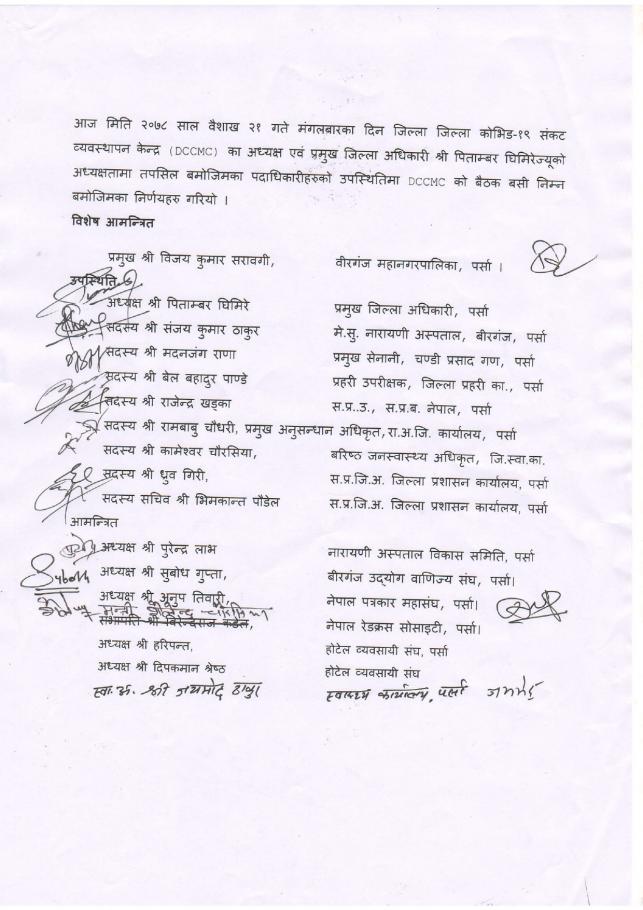 आज मिति २०७८ साल वैशाख २१ गते मंगलबारका दिन जिल्ला जिल्ला कोभिड-१९ संकट
व्यवस्थापन केन्द्र (DCCMC) का अध्यक्ष एवं प्रमुख जिल्ला अधिकारी श्री पिताम्बर घिमिरेज्यूको
अध्यक्षतामा तपसिल बमोजिमका पदाधिकारीहरुको उपस्थितिमा DCCMC को बैठक बसी निम्न
बमोजिमका निर्णयहरु गरियो ।
विशेष आमन्त्रित
प्रमुख श्री विजय कुमार सरावगी, वीरगंज महानगरपालिका, पर्सा ।
उपस्थिति
अध्यक्ष श्री पिताम्बर घिमिरे प्रमुख जिल्ला अधिकारी, पर्सा
सदस्य श्री संजय कुमार ठाकुर मे.सु. नारायणी अस्पताल, बीरगंज, पर्सा
सदस्य श्री मदनजंग राणा प्रमुख सेनानी, चण्डी प्रसाद गण, पर्सा
सदस्य श्री बेल बहादुर पाण्डे प्रहरी उपरीक्षक, जिल्ला प्रहरी का., पर्सा
सदस्य श्री राजेन्द्र खड्का स.प्र..उ., स.प्र.ब. नेपाल, पर्सा
सदस्य श्री रामबाबु चौधरी, प्रमुख अनुसन्धान अधिकृत,रा.अ.जि. कार्यालय, पर्सा
सदस्य श्री कामेश्वर चौरसिया, बरिष्ठ जनस्वास्थ्य अधिकृत, जि.स्वा.का.
सदस्य श्री ध्रुव गिरी, स.प्र.जि.अ. जिल्ला प्रशासन कार्यालय, पर्सा
सदस्य सचिव श्री भिमकान्त पौडेल स.प्र.जि.अ. जिल्ला प्रशासन कार्यालय, पर्सा
आमन्त्रित
अध्यक्ष श्री पुरेन्द्र लाभ नारायणी अस्पताल विकास समिति, पर्सा
Subodh अध्यक्ष श्री सुबोध गुप्ता, बीरगंज उद्योग वाणिज्य संघ, पर्सा।
अध्यक्ष श्री अनुप तिवारी, नेपाल पत्रकार महासंघ, पर्सा।
सभापति श्री बिरेन्द्रराज कडेल, नेपाल रेडक्रस सोसाइटी, पर्सा।
अध्यक्ष श्री हरिपन्त, होटेल व्यवसायी संघ, पर्सा
अध्यक्ष श्री दिपकमान श्रेष्ठ होटेल व्यवसायी संघ
स्वा.अ. श्री जयमोद ठाकुर स्वास्थ्य कार्यालय, पर्सा